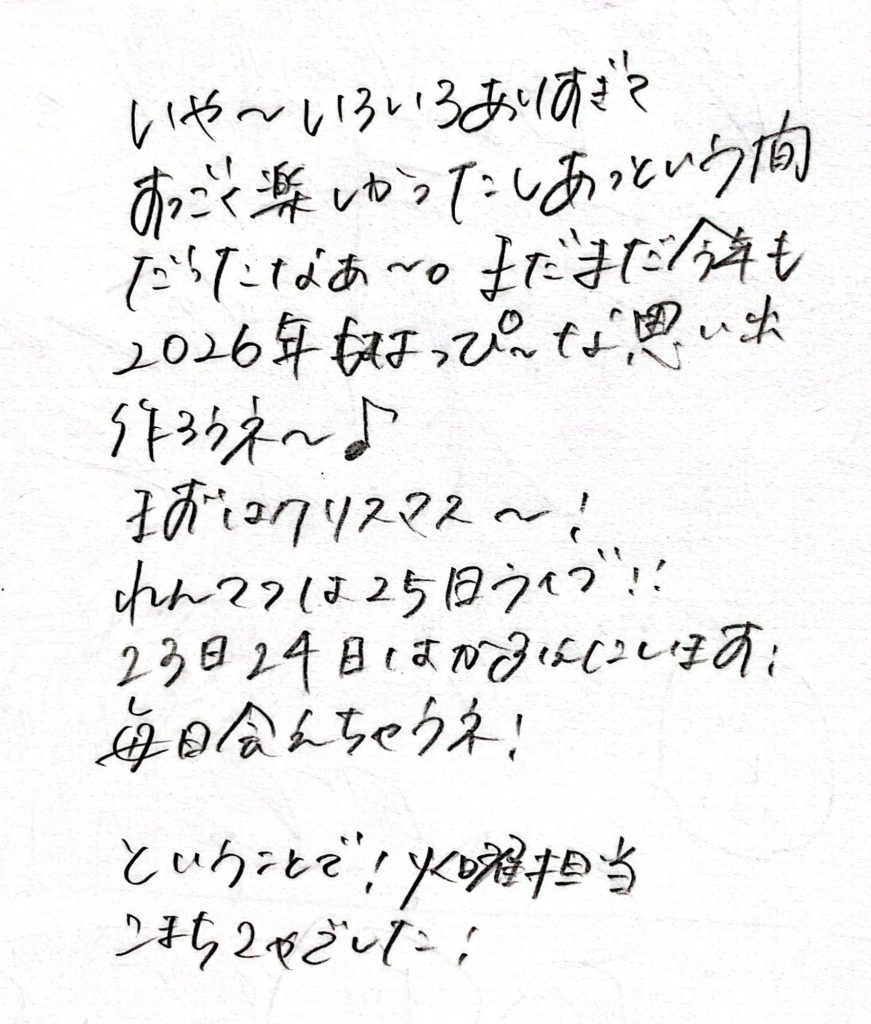 いや〜いろいろありすぎて
すっごく楽しかったしあっという間
だったなあ〜。まだまだ今年も
2026年もはっぴ〜な思い出
作ろうネ〜♪
まずはクリスマス〜!
れんマクは25日ライブ!!
23日24日はかふぇにいます!
毎日会えちゃうネ!
ということで!火曜担当
こまちこやでした!